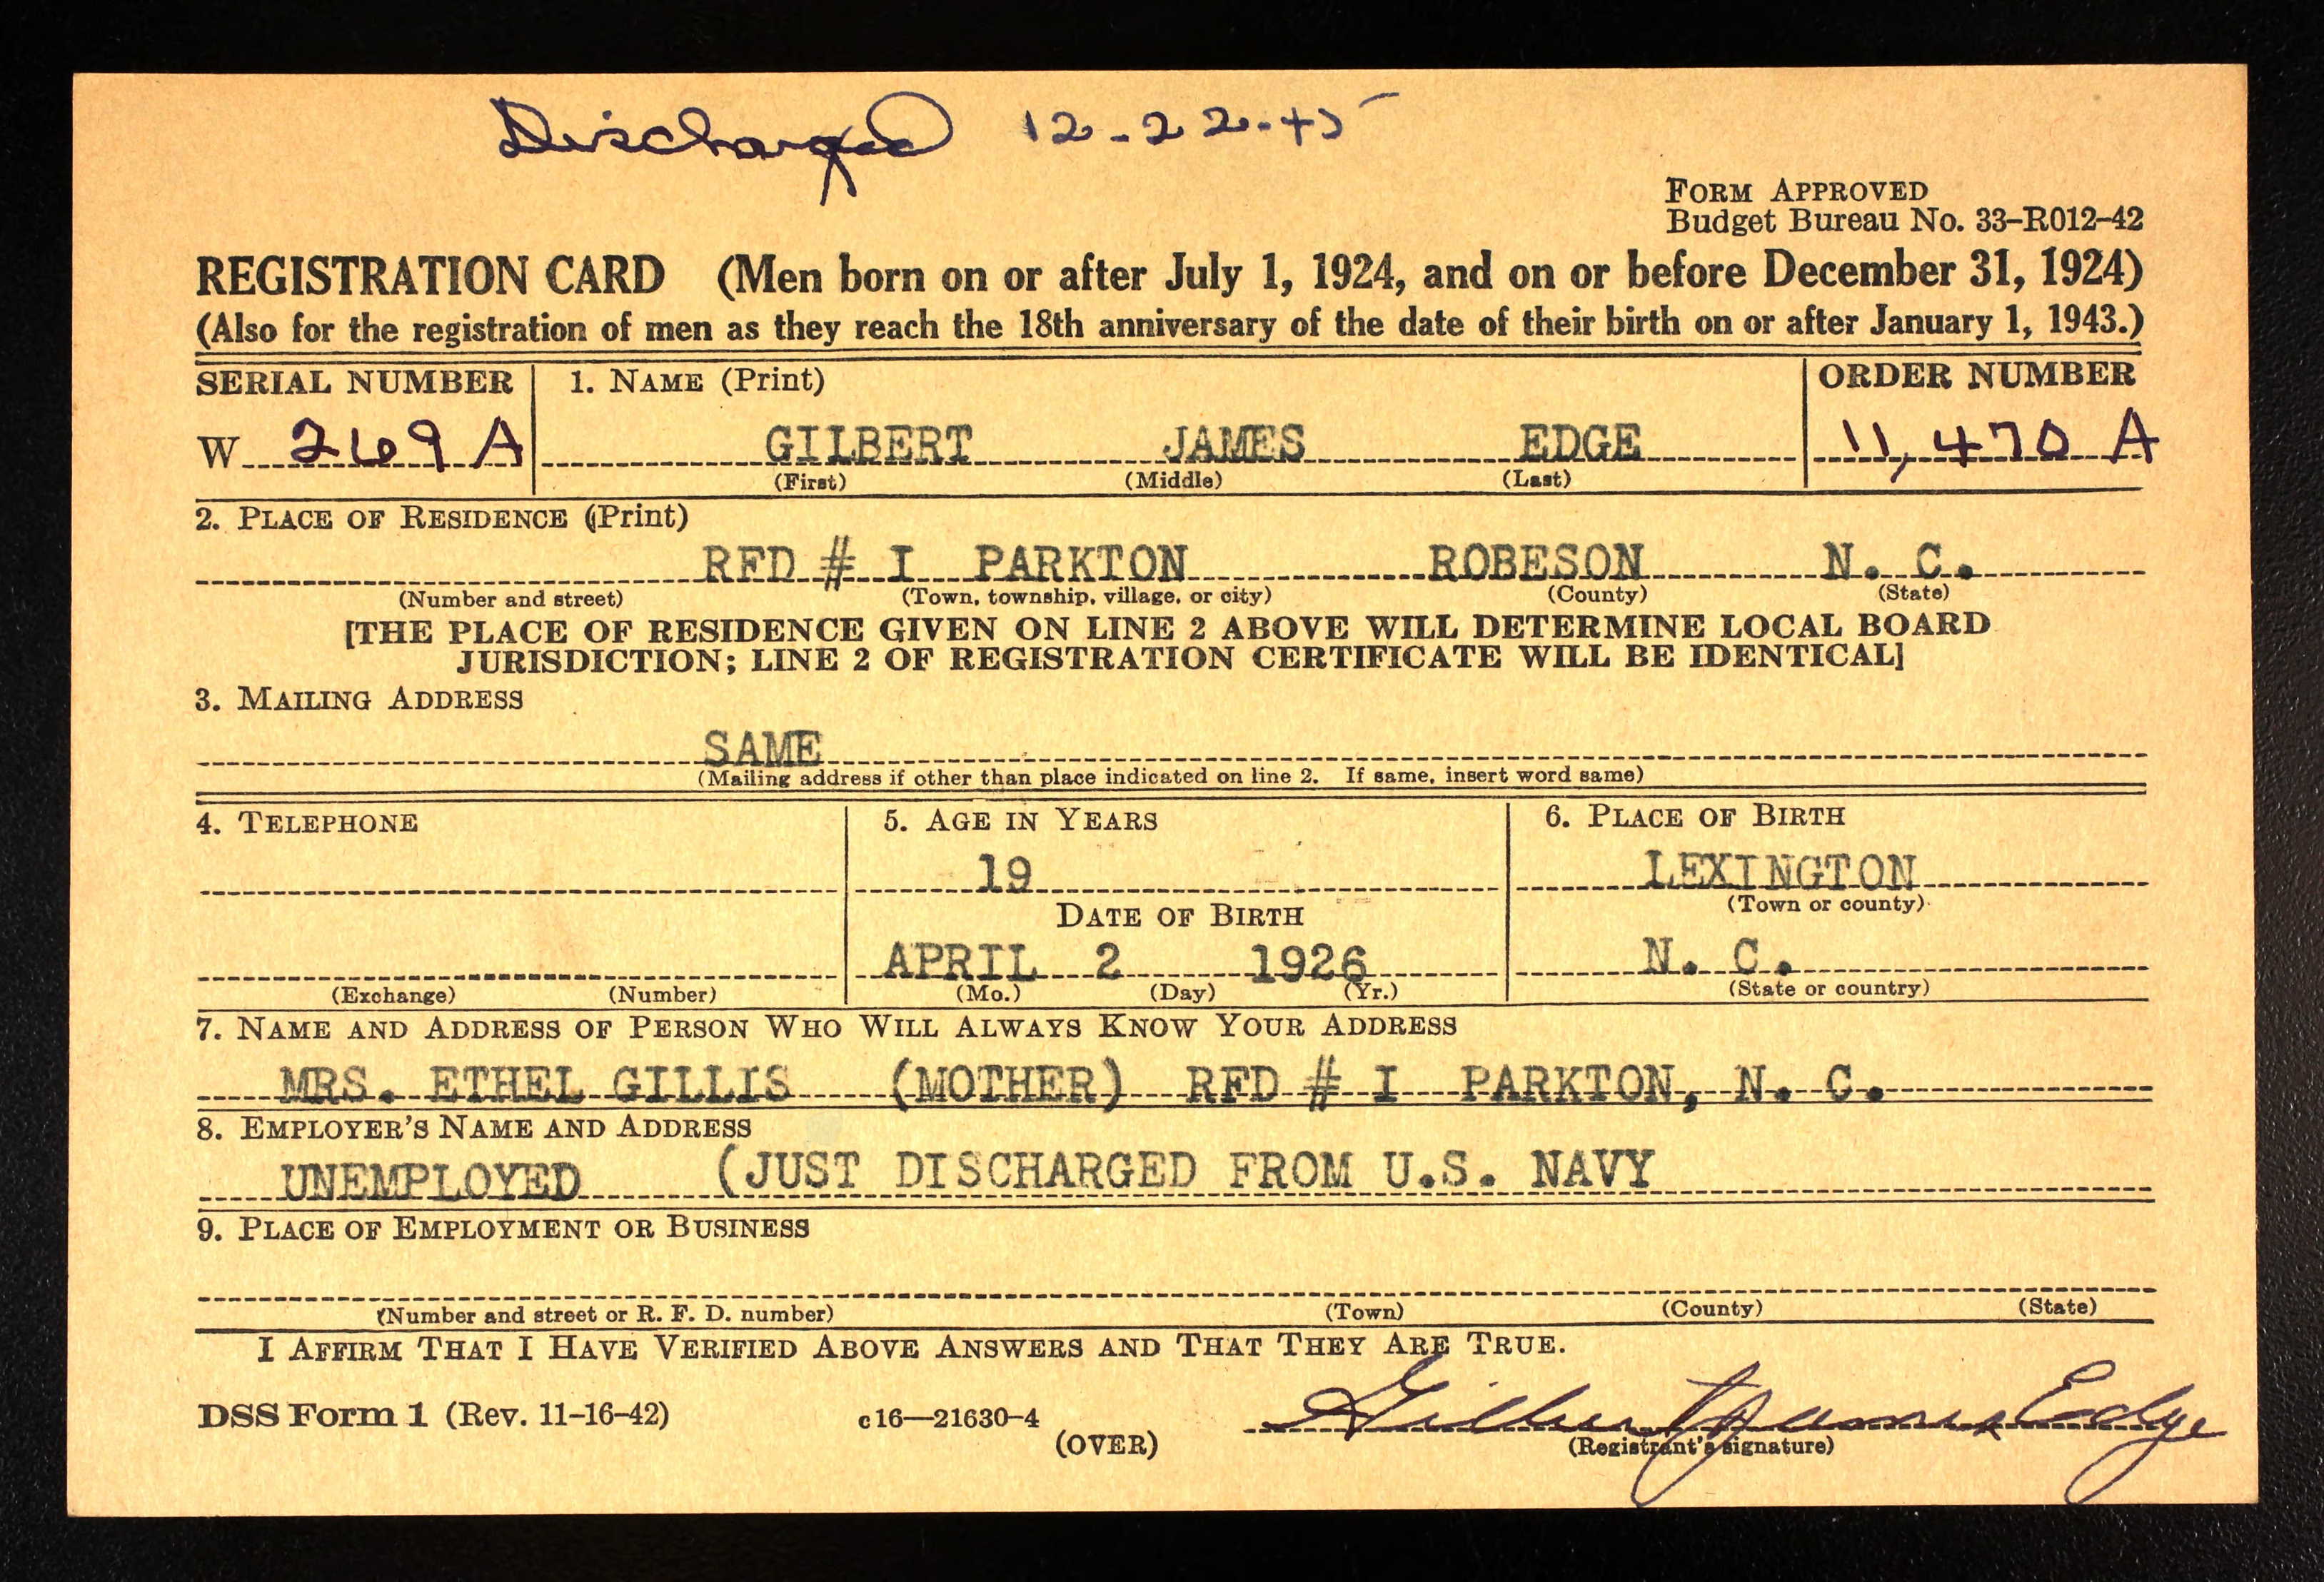 Discharged 12-22-45
FORM APPROVED
Budget Bureau No. 33-R012-42
REGISTRATION CARD (Men born on or after July 1, 1924, and on or before December 31, 1924)
(Also for the registration of men as they reach the 18th anniversary of the date of their birth on or after January 1, 1943.)
SERIAL NUMBER 1. NAME (Print) ORDER NUMBER
W 269 A GILBERT JAMES EDGE 11,470 A
(First) (Middle) (Last)
2. PLACE OF RESIDENCE (Print)
RFD # I PARKTON ROBESON N. C.
(Number and street) (Town, township, village, or city) (County) (State)
[THE PLACE OF RESIDENCE GIVEN ON LINE 2 ABOVE WILL DETERMINE LOCAL BOARD
JURISDICTION; LINE 2 OF REGISTRATION CERTIFICATE WILL BE IDENTICAL]
3. MAILING ADDRESS
SAME
(Mailing address if other than place indicated on line 2. If same, insert word same)
4. TELEPHONE 5. AGE IN YEARS 6. PLACE OF BIRTH
19 LEXINGTON
DATE OF BIRTH (Town or county)
APRIL 2 1926 N. C.
(Exchange) (Number) (Mo.) (Day) (Yr.) (State or country)
7. NAME AND ADDRESS OF PERSON WHO WILL ALWAYS KNOW YOUR ADDRESS
MRS. ETHEL GILLIS (MOTHER) RFD # I PARKTON, N. C.
8. EMPLOYER'S NAME AND ADDRESS
UNEMPLOYED (JUST DISCHARGED FROM U.S. NAVY
9. PLACE OF EMPLOYMENT OR BUSINESS
(Number and street or R. F. D. number) (Town) (County) (State)
I AFFIRM THAT I HAVE VERIFIED ABOVE ANSWERS AND THAT THEY ARE TRUE.
DSS Form 1 (Rev. 11-16-42) c16—21630-4 Gilbert James Edge
(OVER) (Registrant's signature)